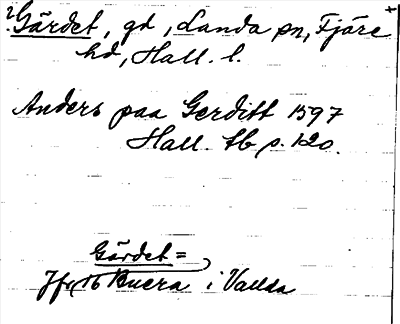 Gärdet, gd, Landa sn, Fjäre
hd, Hall. l.
Anders paa Gerditt 1597
Hall. tb p. 120.
Gärdet =
Jfr, 16 Buera i Vallda